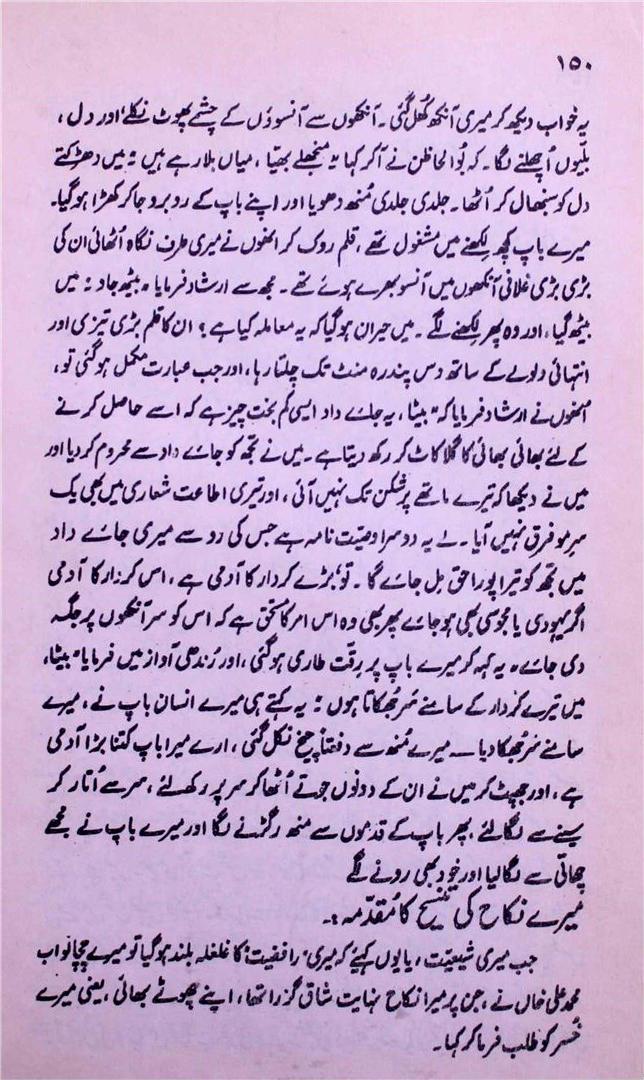 ۱۵۰
یہ خواب دیکھ کر میری آنکھ کھُل گئی ۔ آنکھوں سے آنسوؤں کے چشمے پھوٹ نکلے، اور دل ،
بلیّوں اُچھلنے لگا ۔ کہ بُوا لحاظن نے آکر کہا "منجھلے بھیّا ، میاں بلا رہے ہیں" میں دھڑکتے
دل کو سنبھال کر اُٹھا ۔ جلدی جلدی مُنھ دھویا اور اپنے باپ کے روبرو جا کر کھڑا ہو گیا۔
میرے باپ کچھ لکھنے میں مشغول تھے ، قلم روک کر انھوں نے میری طرف نگاہ اُٹھائی ان کی
بڑی بڑی غلافی آنکھوں میں آنسو بھرے ہوئے تھے ۔ مجھ سے ارشاد فرمایا "بیٹھ جاؤ" میں
بیٹھ گیا ، اور وہ پھر لکھنے لگے ۔ میں حیران ہو گیا کہ یہ معاملہ کیا ہے ؟ ان کا قلم بڑی تیزی اور
انتہائی ولولے کے ساتھ دس پندرہ منٹ تک چلتا رہا ، اور جب عبارت مکمل ہو گئی تو ،
انھوں نے ارشاد فرمایا کہ "بیٹا ، یہ جائے داد ایسی کم بخت چیز ہے کہ اسے حاصل کرنے
کے لئے بھائی بھائی کا گلا کاٹ کر رکھ دیتا ہے ۔ میں نے تجھ کو جائے داد سے محروم کر دیا اور
میں نے دیکھا کہ تیرے ماتھے پر شکن تک نہیں آئی ، اور تیری اطاعت شعاری میں بھی یک
سرِ مو فرق نہیں آیا ۔ لے یہ دوسرا وصیّت نامہ ہے جس کی رو سے میری جائے داد
میں تجھ کو تیرا پورا حق مل جائے گا ۔ تو بڑے کردار کا آدمی ہے ، اس کردار کا آدمی
اگر یہودی یا مجوسی بھی ہو جائے پھر بھی وہ اس امر کا مستحق ہے کہ اس کو سر آنکھوں پر جگہ
دی جائے" یہ کہہ کر میرے باپ پر رقّت طاری ہو گئی ، اور رُندھی آواز میں فرمایا "بیٹا،
میں تیرے کردار کے سامنے سَر جھکاتا ہوں" یہ کہتے ہی میرے انسان باپ نے ، میرے
سامنے سَر جھکا دیا ــ میرے مُنھ سے دفعتاً چیخ نکل گئی ، ارے میرا باپ کتنا بڑا آدمی
ہے ، اور جھپٹ کر میں نے ان کے دونوں جوتے اُٹھا کر سر پر رکھ لئے ، سر سے اُتار کر
سینے سے لگا لئے ، پھر باپ کے قدموں سے منھ رگڑنے لگا اور میرے باپ نے مجھے
چھاتی سے لگا لیا اور خود بھی رونے لگے
میرے نکاح کی تنسیخ کا مُقدّمہ :۔
جب میری شیعیّت ، یا یوں کہئے کہ میری "رافضیت" کا غلغلہ بلند ہو گیا تو میرے چچا نواب
محمد علی خاں نے ، جن پر میرا نکاح نہایت شاق گزرا تھا ، اپنے چھوٹے بھائی ، یعنی میرے
خُسر کو طلب فرما کر کہا ۔